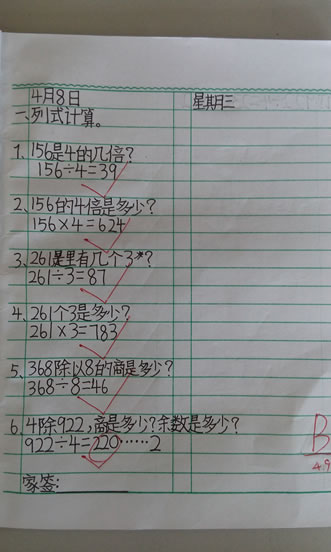 4月8日 星期三
一、列式计算。
1、156是4的几倍?
156÷4=39
2、156的4倍是多少?
156×4=624
3、261是里有几个3*?
261÷3=87
4、261个3是多少?
261×3=783
5、368除以8的商是多少?
368÷8=46
6、4除922,商是多少?余数是多少?
922÷4=220……2
B
4.9
家签: